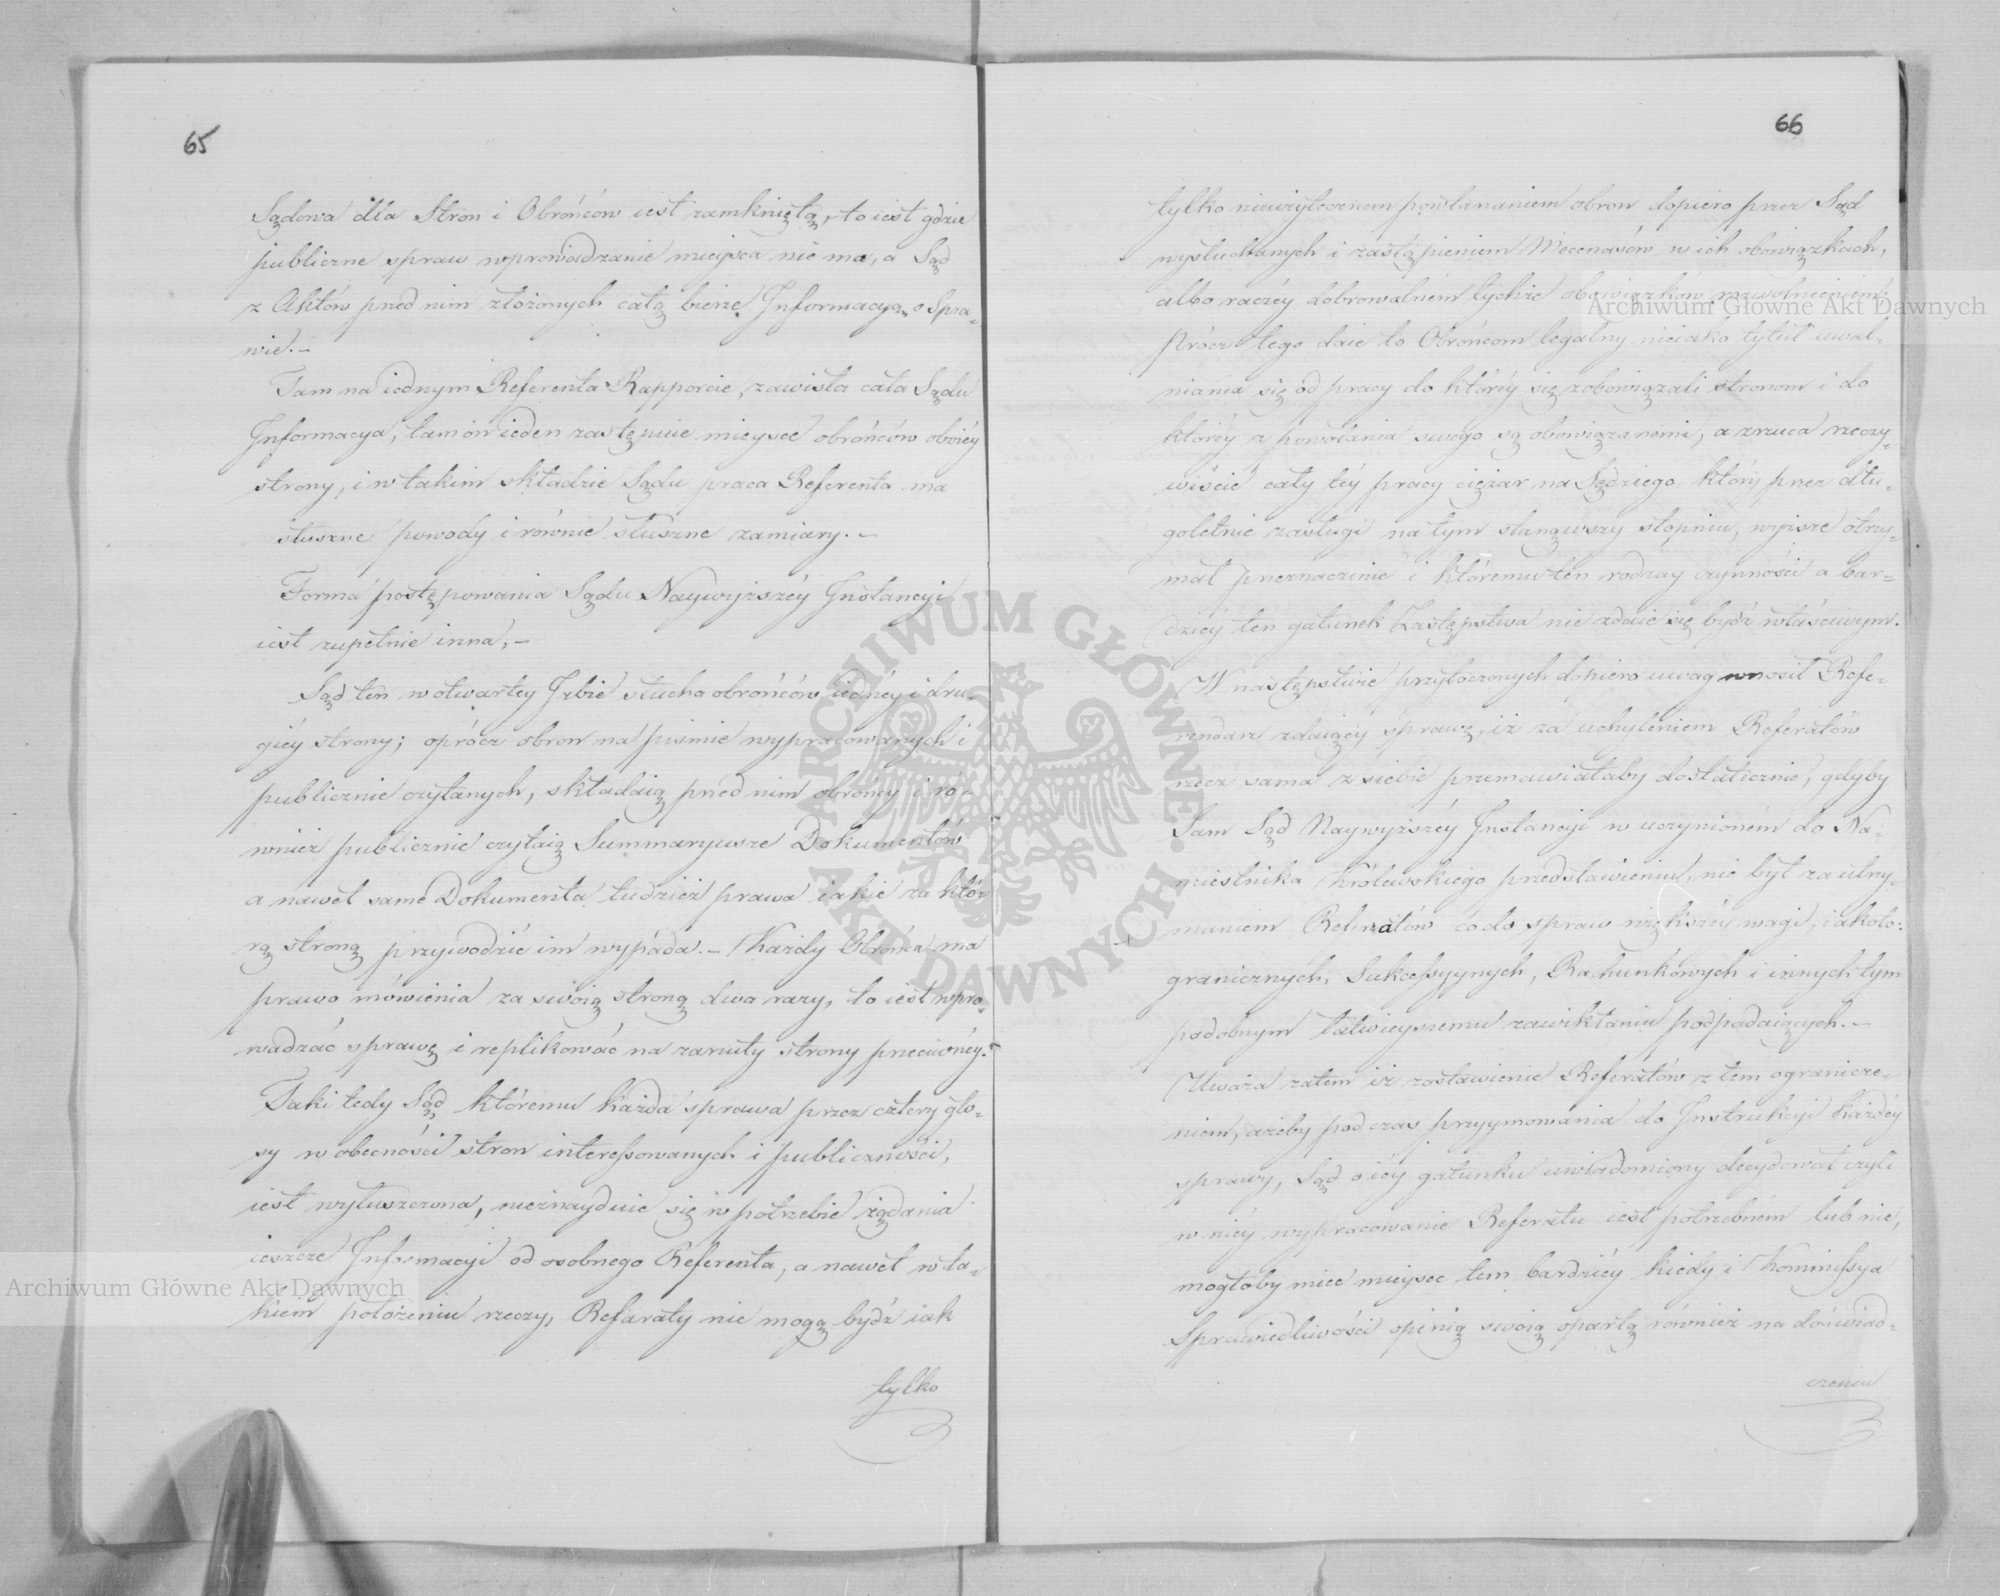 65
Sądowa dla Stron i Obrońców iest zamkniętą, to iest gdzie
publiczne spraw wprowadzanie mieysca nie ma, a Sąd
z Aktów przed nim złożonych całą bierze Informacyą o Spra-
wie.-
Tam na iednym Referenta Rapporcie, zawisła cała Sądu
Informacya, tam on ieden zastępuie mieysce obrońców oboiéy
strony, i w takim składzie Sądu praca Referenta ma
słuszne powody i równie słuszne zamiary.-
Forma postępowania Sądu Naywyższéy Instancyi
iest zupełnie inna,-
Sąd ten w otwartey Izbie słucha obrońców iednéy i dru-
giéy strony; oprócz obron na piśmie wypracowanych i
publicznie czytanych, składaią przed nim obrońcy i ró-
wnież publicznie czytaią Summaryusze Dokumentów
a nawet same Dokumenta tudzież prawa iakie za któ-
rą stroną przywodzić im wypada.- Każdy Obrońca ma
prawo mówienia za swoią stroną dwa razy, to iest wpro-
wadzać sprawę i replikować na zarzuty strony przeciwnéy.
Taki tedy Sąd któremu każda sprawa przez cztery gło-
sy w obecności stron interessowanych i publiczności,
iest wyłuszczona, nieznayduie się w potrzebie żądania
ieszcze Informacyi od osobnego Referenta, a nawet w ta-
kiem położeniu rzeczy, Referaty nie mogą bydź iak
tylko
66
tylko nieużytecznem powtarzaniem obron dopiero przez Sąd
wysłuchanych i zastąpieniem Mecenasów w ich obowiązkach,
albo raczéy dobrowolném tychże obowiązków rozwolnieniem.
Prócz tego daie to Obrońcom legalny nieiako tytuł uwal-
niania się od pracy do któréy się zobowiązali stronom i do
któréy z powołania swego są obowiązanemi, a zrzuca rzeczy-
wiście cały téy pracy ciężar na Sędziego, który przez dłu-
goletnie zasługi na tym stanąwszy stopniu, wyższe otrzy-
mał przeznaczenie i któremu ten rodzay czynności a bar-
dziéy ten gatunek Zastępstwa nie zdaie się bydź właściwym.
W następstwie przytoczonych dopiero uwag wnosił Refe-
rendarz zdaiący sprawę, iż za uchyleniem Referatów
rzecz sama z siebie przemawiałaby dostatecznie, gdyby
Sam Sąd Naywyższéy Instancyi w uczynionem do Na-
miestnika Królewskiego przedstawieniu, nie był za utrzy-
maniem Referatów co do spraw większéy wagi, iakoto:
granicznych, Sukcessyynych, Rachunkowych i innych tym
podobnym łatwieyszemu zawikłaniu podpadaiących.-
Uważa zatem iż zostawienie Referatów z tem ogranicze-
niem, ażeby podczas przyymowania do Instrukcyi każdéy
sprawy, Sąd o iéy gatunku uwiadomiony decydował czyli
w niéy wypracowanie Referatu iest potrzebném lub nie,
mogłoby mieć mieysce tem bardziéy kiedy i Kommissya
Sprawiedliwości opinią swoią opartą również na doświad-
czeniu
Archiwum Główne Akt Dawnych
Archiwum Główne Akt Dawnych
ARCHIWUM GŁÓWNE AKT DAWNYCH